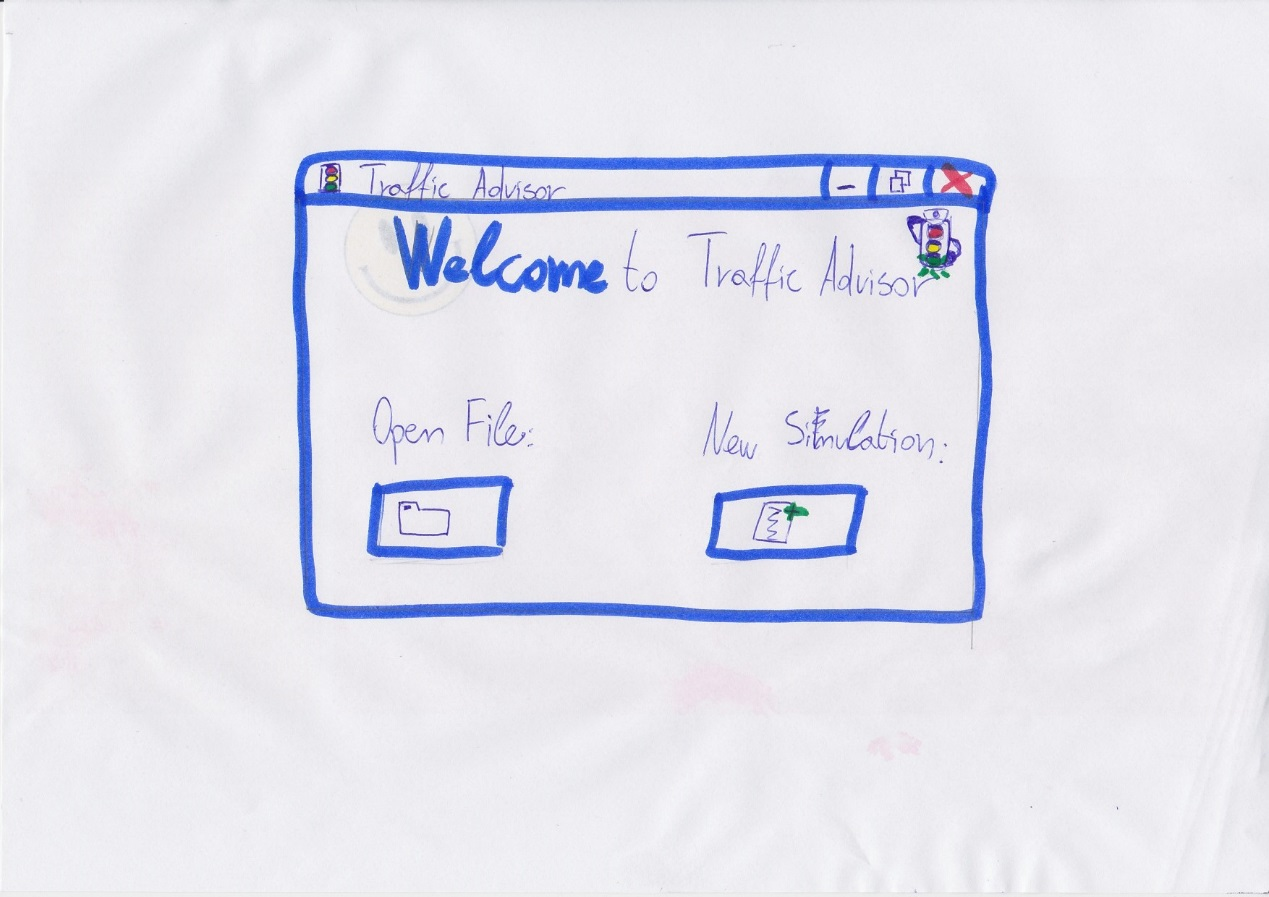 Traffic Advisor
Welcome to Traffic Advisor
Open File:
New Simulation: